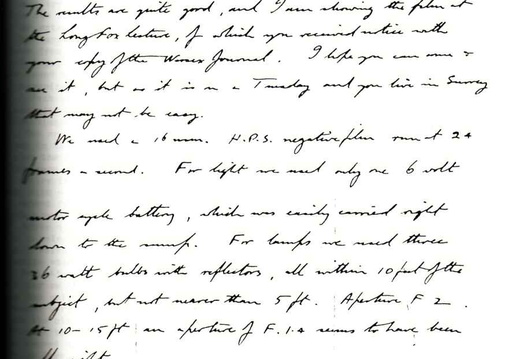 The results are quite good, and I am showing the film at
the Longfox lecture, of which you received notice with
your copy of the Wessex Journal. I hope you can come &
see it, but as it is on a Tuesday and you live in Surrey
that may not be easy.
We used a 16 mm. H.P.S. negative film run at 24
frames a second. For light we used only one 6 volt
motor cycle battery, which was easily carried right
down to the sump. For lamps we used three
36 watt bulbs with reflectors, all within 10 feet of the
subject, but not nearer than 5 ft. Aperture F 2.
At 10-15 ft an aperture of F.1.4 seems to have been